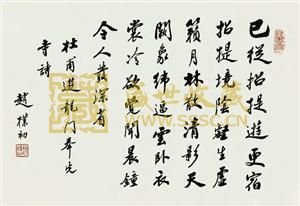 已從招提遊更宿
招提境陰壑生虛
籟月林散清影天
闕象緯逼雲卧衣
裳冷欲覺聞晨鐘
令人發深省
杜甫遊龍門奉先
寺詩
趙樸初
盛世收藏